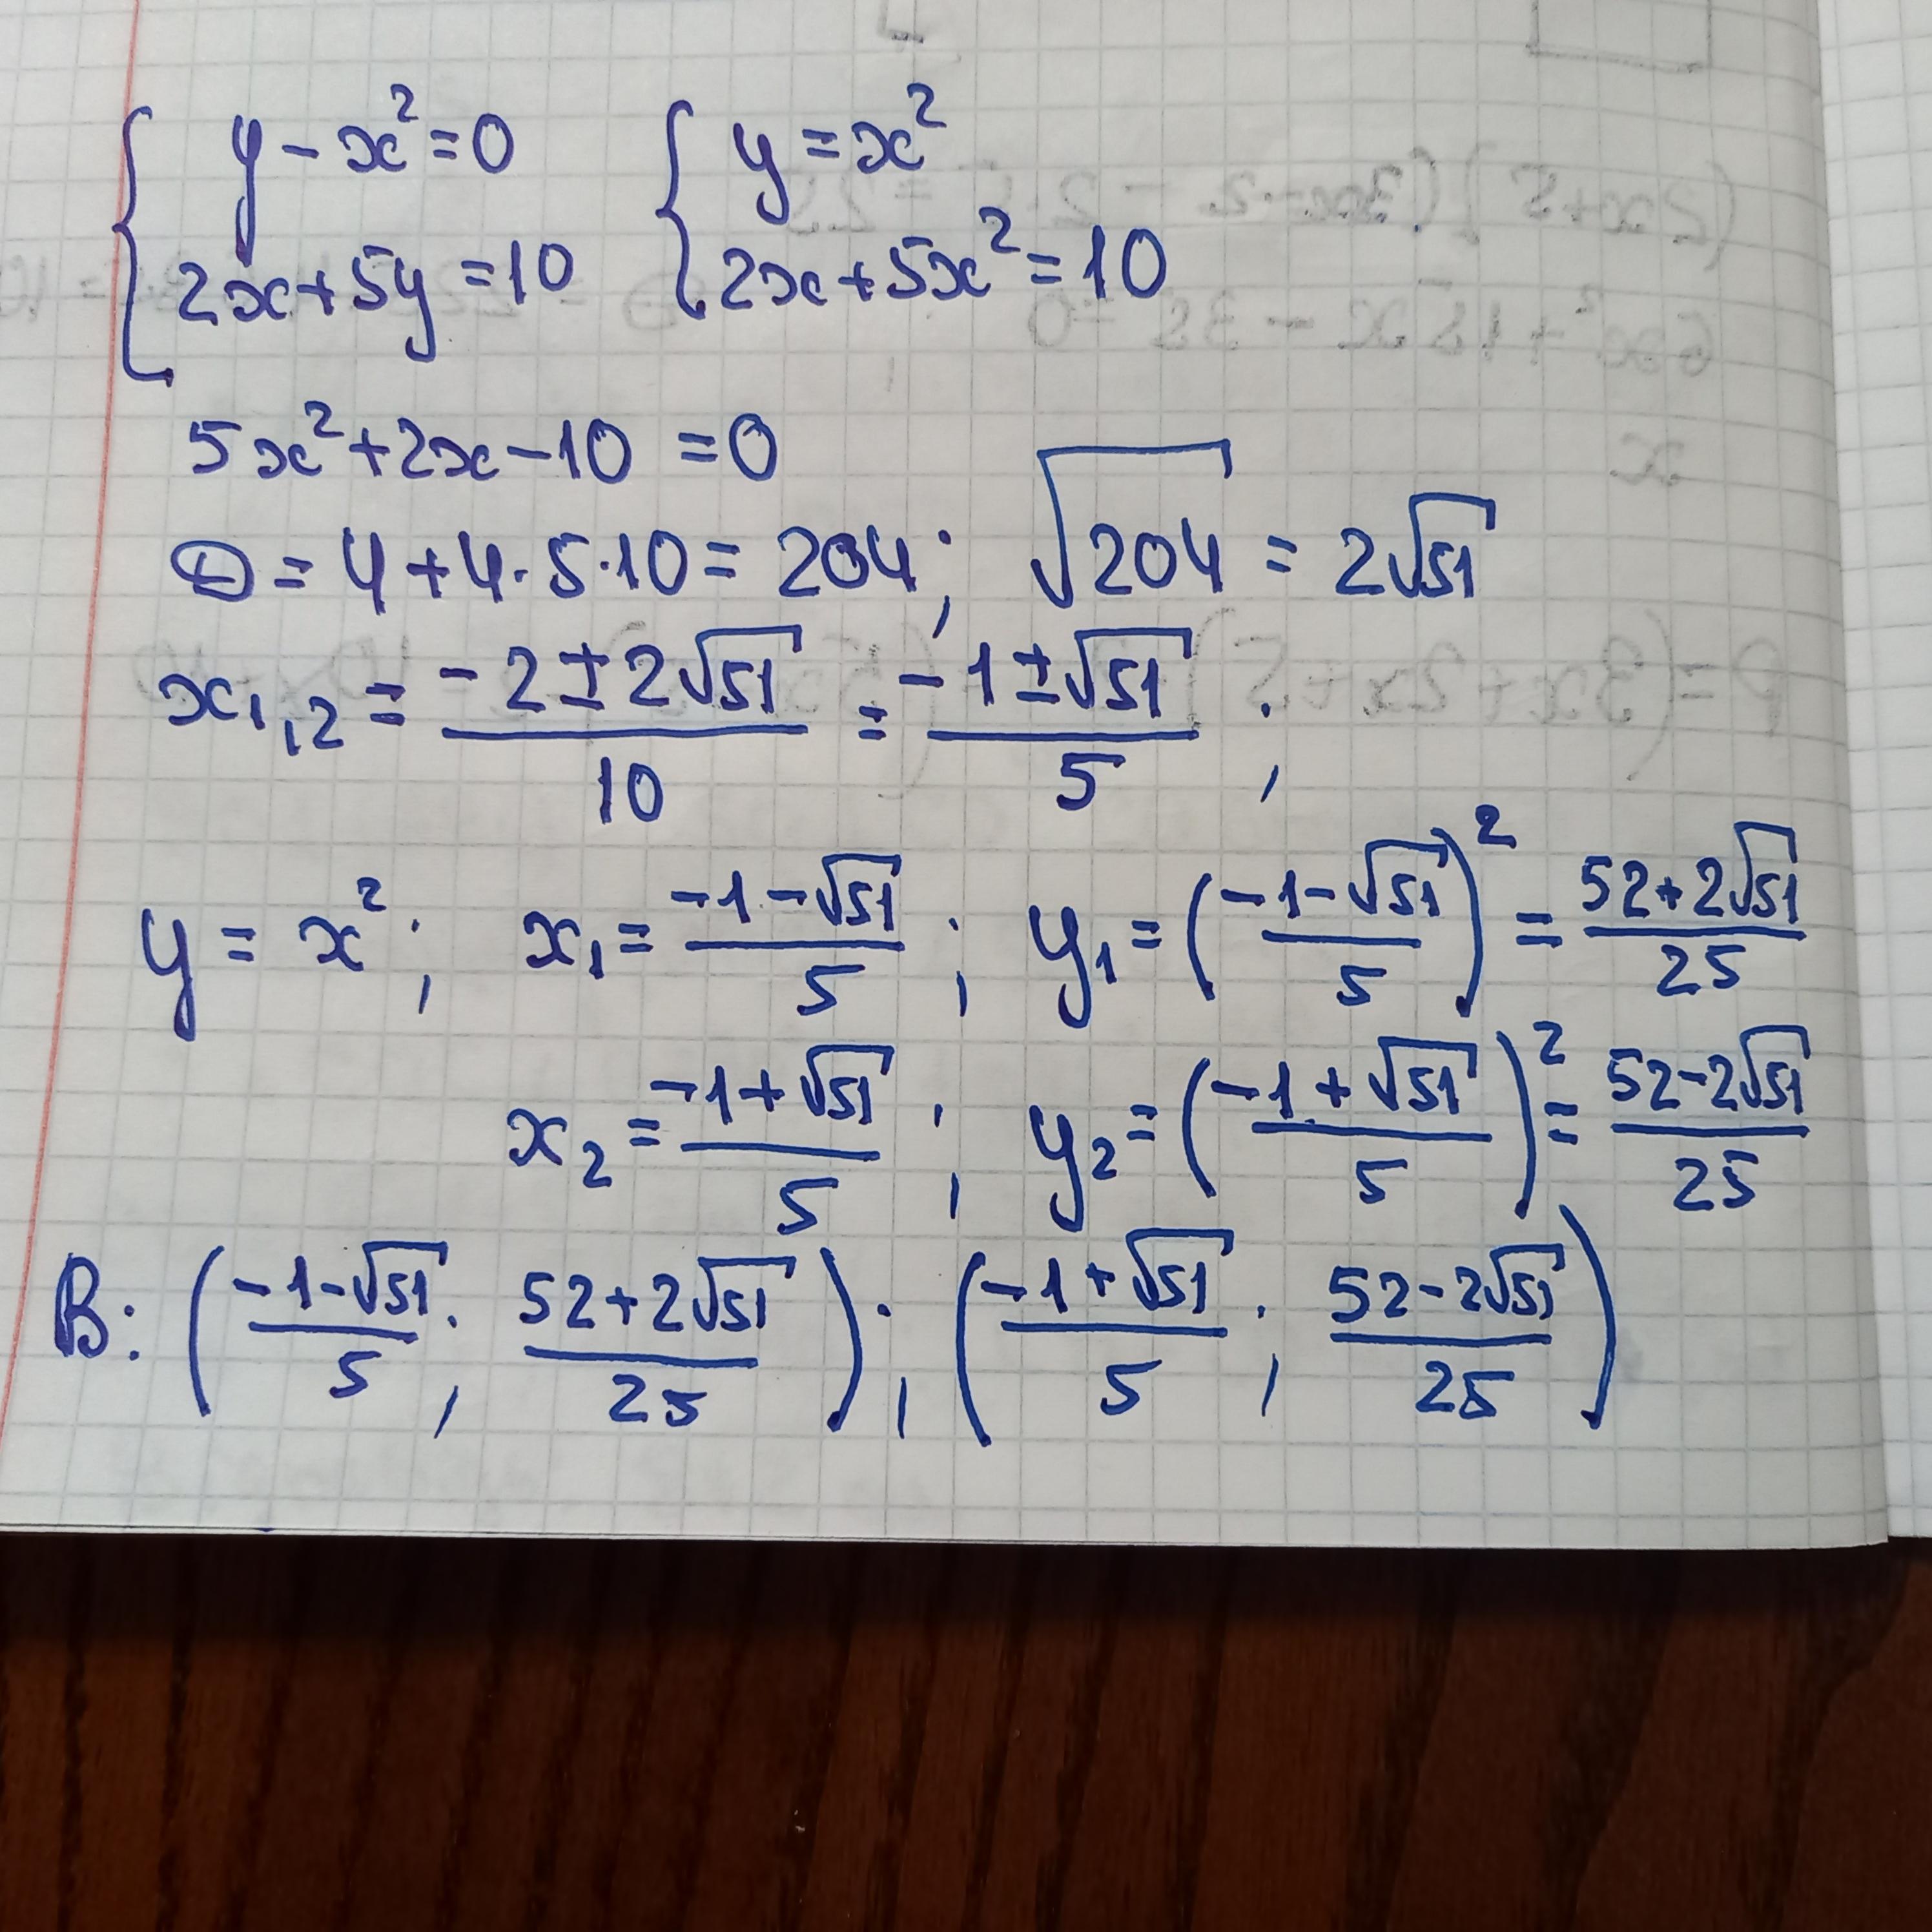 { y - x² = 0 { y = x²
2x + 5y = 10 2x + 5x² = 10
5x² + 2x - 10 = 0
D = 4 + 4·5·10 = 204; √204 = 2√51
x₁,₂ = (-2 ± 2√51)/10 = (-1 ± √51)/5 ;
y = x²; x₁ = (-1 - √51)/5 ; y₁ = ((-1 - √51)/5)² = (52 + 2√51)/25
x₂ = (-1 + √51)/5 ; y₂ = ((-1 + √51)/5)² = (52 - 2√51)/25
В: ((-1 - √51)/5 ; (52 + 2√51)/25); ((-1 + √51)/5 ; (52 - 2√51)/25)